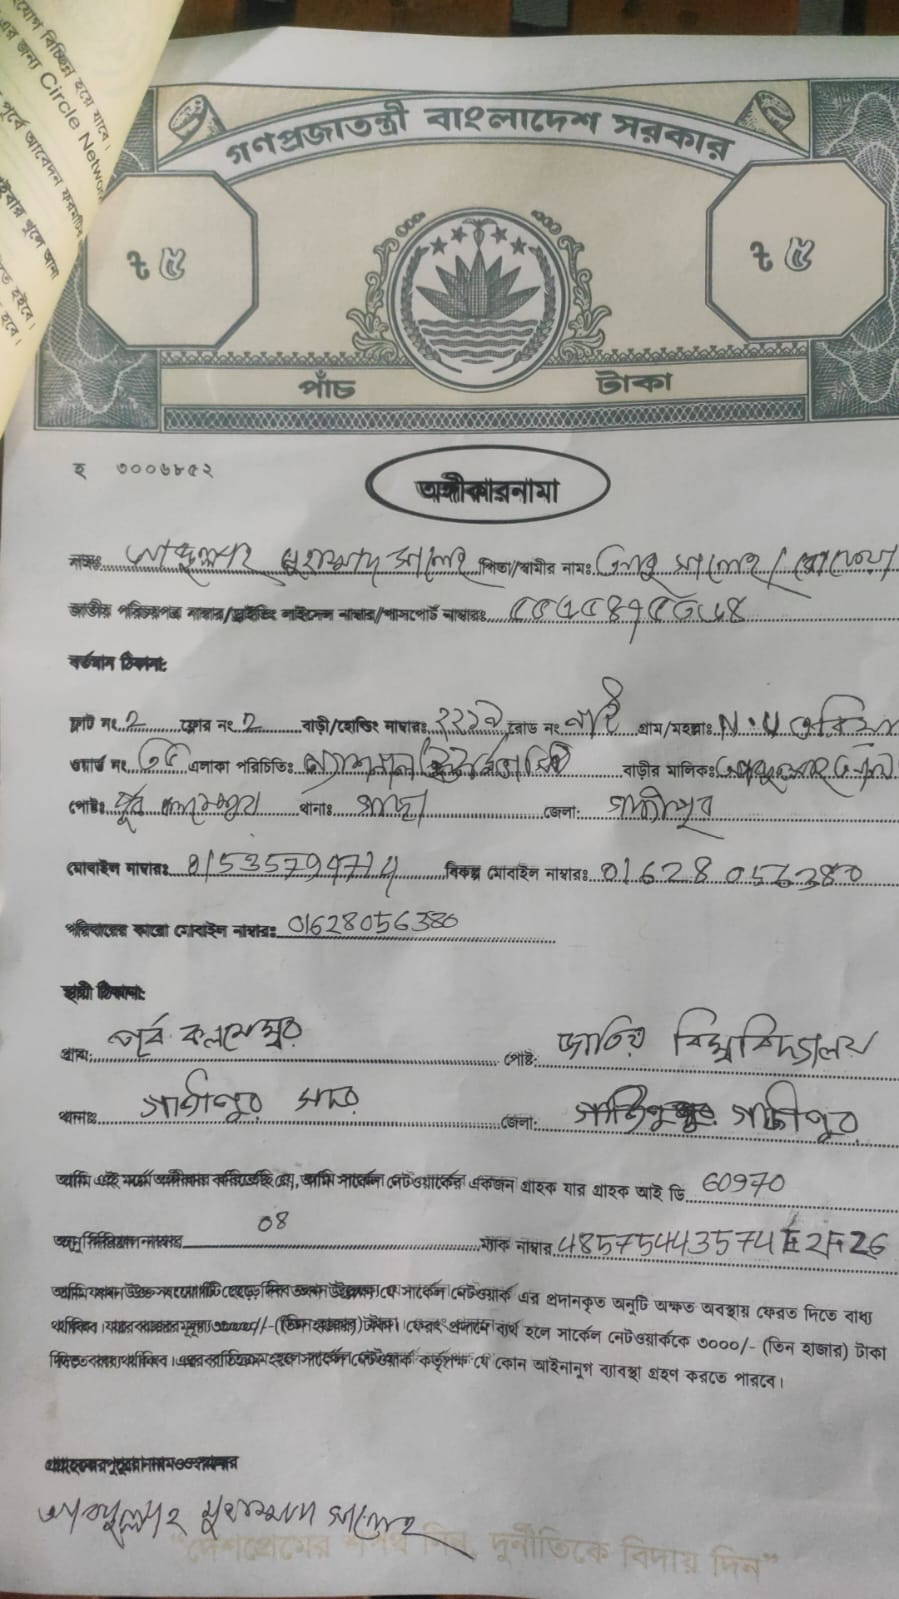 যোগ বিচ্ছিন্ন হয়ে যাবে।
এর জন্য Circle Netwo
পূর্বে আবেদন ফরমটি
হইবে।
হবে।
গণপ্রজাতন্ত্রী বাংলাদেশ সরকার
৳ ৫ ৳ ৫
পাঁচ টাকা
হ ৩০০৬৮৫২
অঙ্গীকারনামা
নামঃ আব্দুল্লাহ মুহাম্মাদ সালেহ পিতা/স্বামীর নামঃ আবু সালেহ
জাতীয় পরিচয়পত্র নাম্বার/ড্রাইভিং লাইসেন্স নাম্বার/পাসপোর্ট নাম্বারঃ
বর্তমান ঠিকানা:
ফ্লাট নং 2 ফ্লোর নং 2 বাড়ী/হোল্ডিং নাম্বারঃ রোড নং নাই গ্রাম/মহল্লাঃ N.U
ওয়ার্ড নং ৩৫ এলাকা পরিচিতিঃ বাড়ীর মালিকঃ
পোষ্টঃ পূর্ব কলমেশ্বর থানাঃ গাছা জেলা: গাজীপুর
মোবাইল নাম্বারঃ বিকল্প মোবাইল নাম্বারঃ 01628056380
পরিবারের কারো মোবাইল নাম্বারঃ 01628056380
স্থায়ী ঠিকানা:
গ্রাম: পূর্ব কলমেশ্বর পোষ্ট: জাতিয় বিশ্ববিদ্যালয়
থানাঃ গাজীপুর সদর জেলা: গাজীপুর
আমি এই মর্মে অঙ্গীকার করিতেছি যে, আমি সার্কেল নেটওয়ার্কের একজন গ্রাহক যার গ্রাহক আই ডি 60970
08
অনু সিরিয়াল নাম্বার ম্যাক নাম্বার 485754435741E2F26
আমি যখন উক্ত সংযোগটি ছেড়ে দিব তখন উল্লেখ্য যে সার্কেল নেটওয়ার্ক এর প্রদানকৃত অনুটি অক্ষত অবস্থায় ফেরত দিতে বাধ্য
থাকিব। যার বাজার মূল্য ৩০০০/-(তিন হাজার) টাকা। ফেরৎ প্রদানে ব্যর্থ হলে সার্কেল নেটওয়ার্ককে ৩০০০/- (তিন হাজার) টাকা
দিতে বাধ্য থাকিব। এর ব্যতিক্রম হলে সার্কেল নেটওয়ার্ক কর্তৃপক্ষ যে কোন আইনানুগ ব্যাবস্থা গ্রহণ করতে পারবে।
আব্দুল্লাহ মুহাম্মাদ সালেহ
"দেশপ্রেমের শপথ নিন, দুর্নীতিকে বিদায় দিন"